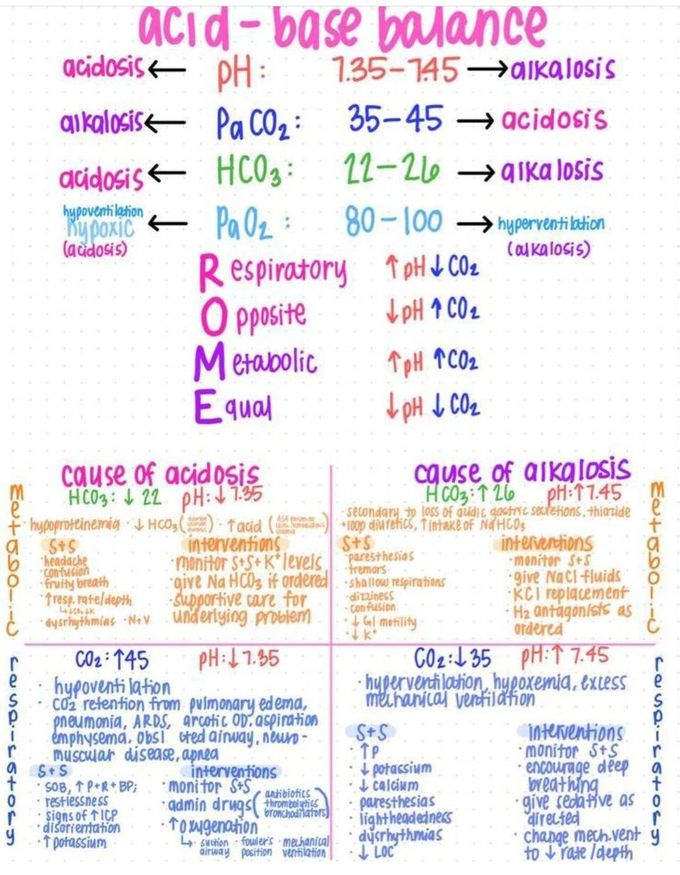 acid-base balance
acidosis ← pH: 7.35-7.45 → alkalosis
alkalosis ← PaCO2: 35-45 → acidosis
acidosis ← HCO3: 22-26 → alkalosis
hypoventilation
hypoxic ← PaO2: 80-100 → hyperventilation
(acidosis) (alkalosis)
Respiratory ↑pH ↓CO2
Opposite ↓pH ↑CO2
Metabolic ↑pH ↑CO2
Equal ↓pH ↓CO2
cause of acidosis
HCO3: ↓ 22 pH: ↓ 7.35
metabolic
· hypoproteinemia · ↓ HCO3 · ↑acid
S+S
· headache
· confusion
· fruity breath
· ↑ resp. rate/depth
· dysrhythmias · N+V
interventions
· monitor S+S+ K+ levels
· give NaHCO3 if ordered
· supportive care for
underlying problem
cause of alkalosis
HCO3: ↑ 26 pH: ↑ 7.45
metabolic
· secondary to loss of acidic gastric secretions, thiazide
+loop diuretics, ↑ intake of NaHCO3
S+S
· paresthesias
· tremors
· shallow respirations
· dizziness
· confusion
· ↓ GI motility
· ↓ K+
interventions
· monitor S+S
· give NaCl fluids
· KCl replacement
· H2 antagonists as
ordered
respiratory
CO2: ↑45 pH: ↓ 7.35
· hypoventilation
· CO2 retention from pulmonary edema,
pneumonia, ARDS, arcotic OD, aspiration
emphysema, obst cted airway, neuro-
muscular disease, apnea
S+S
· SOB, ↑ P+R+BP;
· restlessness
· signs of ↑ICP
· disorientation
· ↑ potassium
interventions
· monitor S+S
· admin drugs (antibiotics
thrombolytics
bronchodilators)
· ↑ oxygenation
↳ · suction · fowler's · mechanical
airway position ventilation
CO2: ↓ 35 pH: ↑ 7.45
respiratory
· hyperventilation, hypoxemia, excess
mechanical ventilation
S+S
· ↑P
· ↓ potassium
· ↓ calcium
· paresthesias
· lightheadedness
· dysrhythmias
· ↓ LOC
interventions
· monitor S+S
· encourage deep
breathing
· give sedative as
directed
· change mech. vent
to ↓ rate/depth